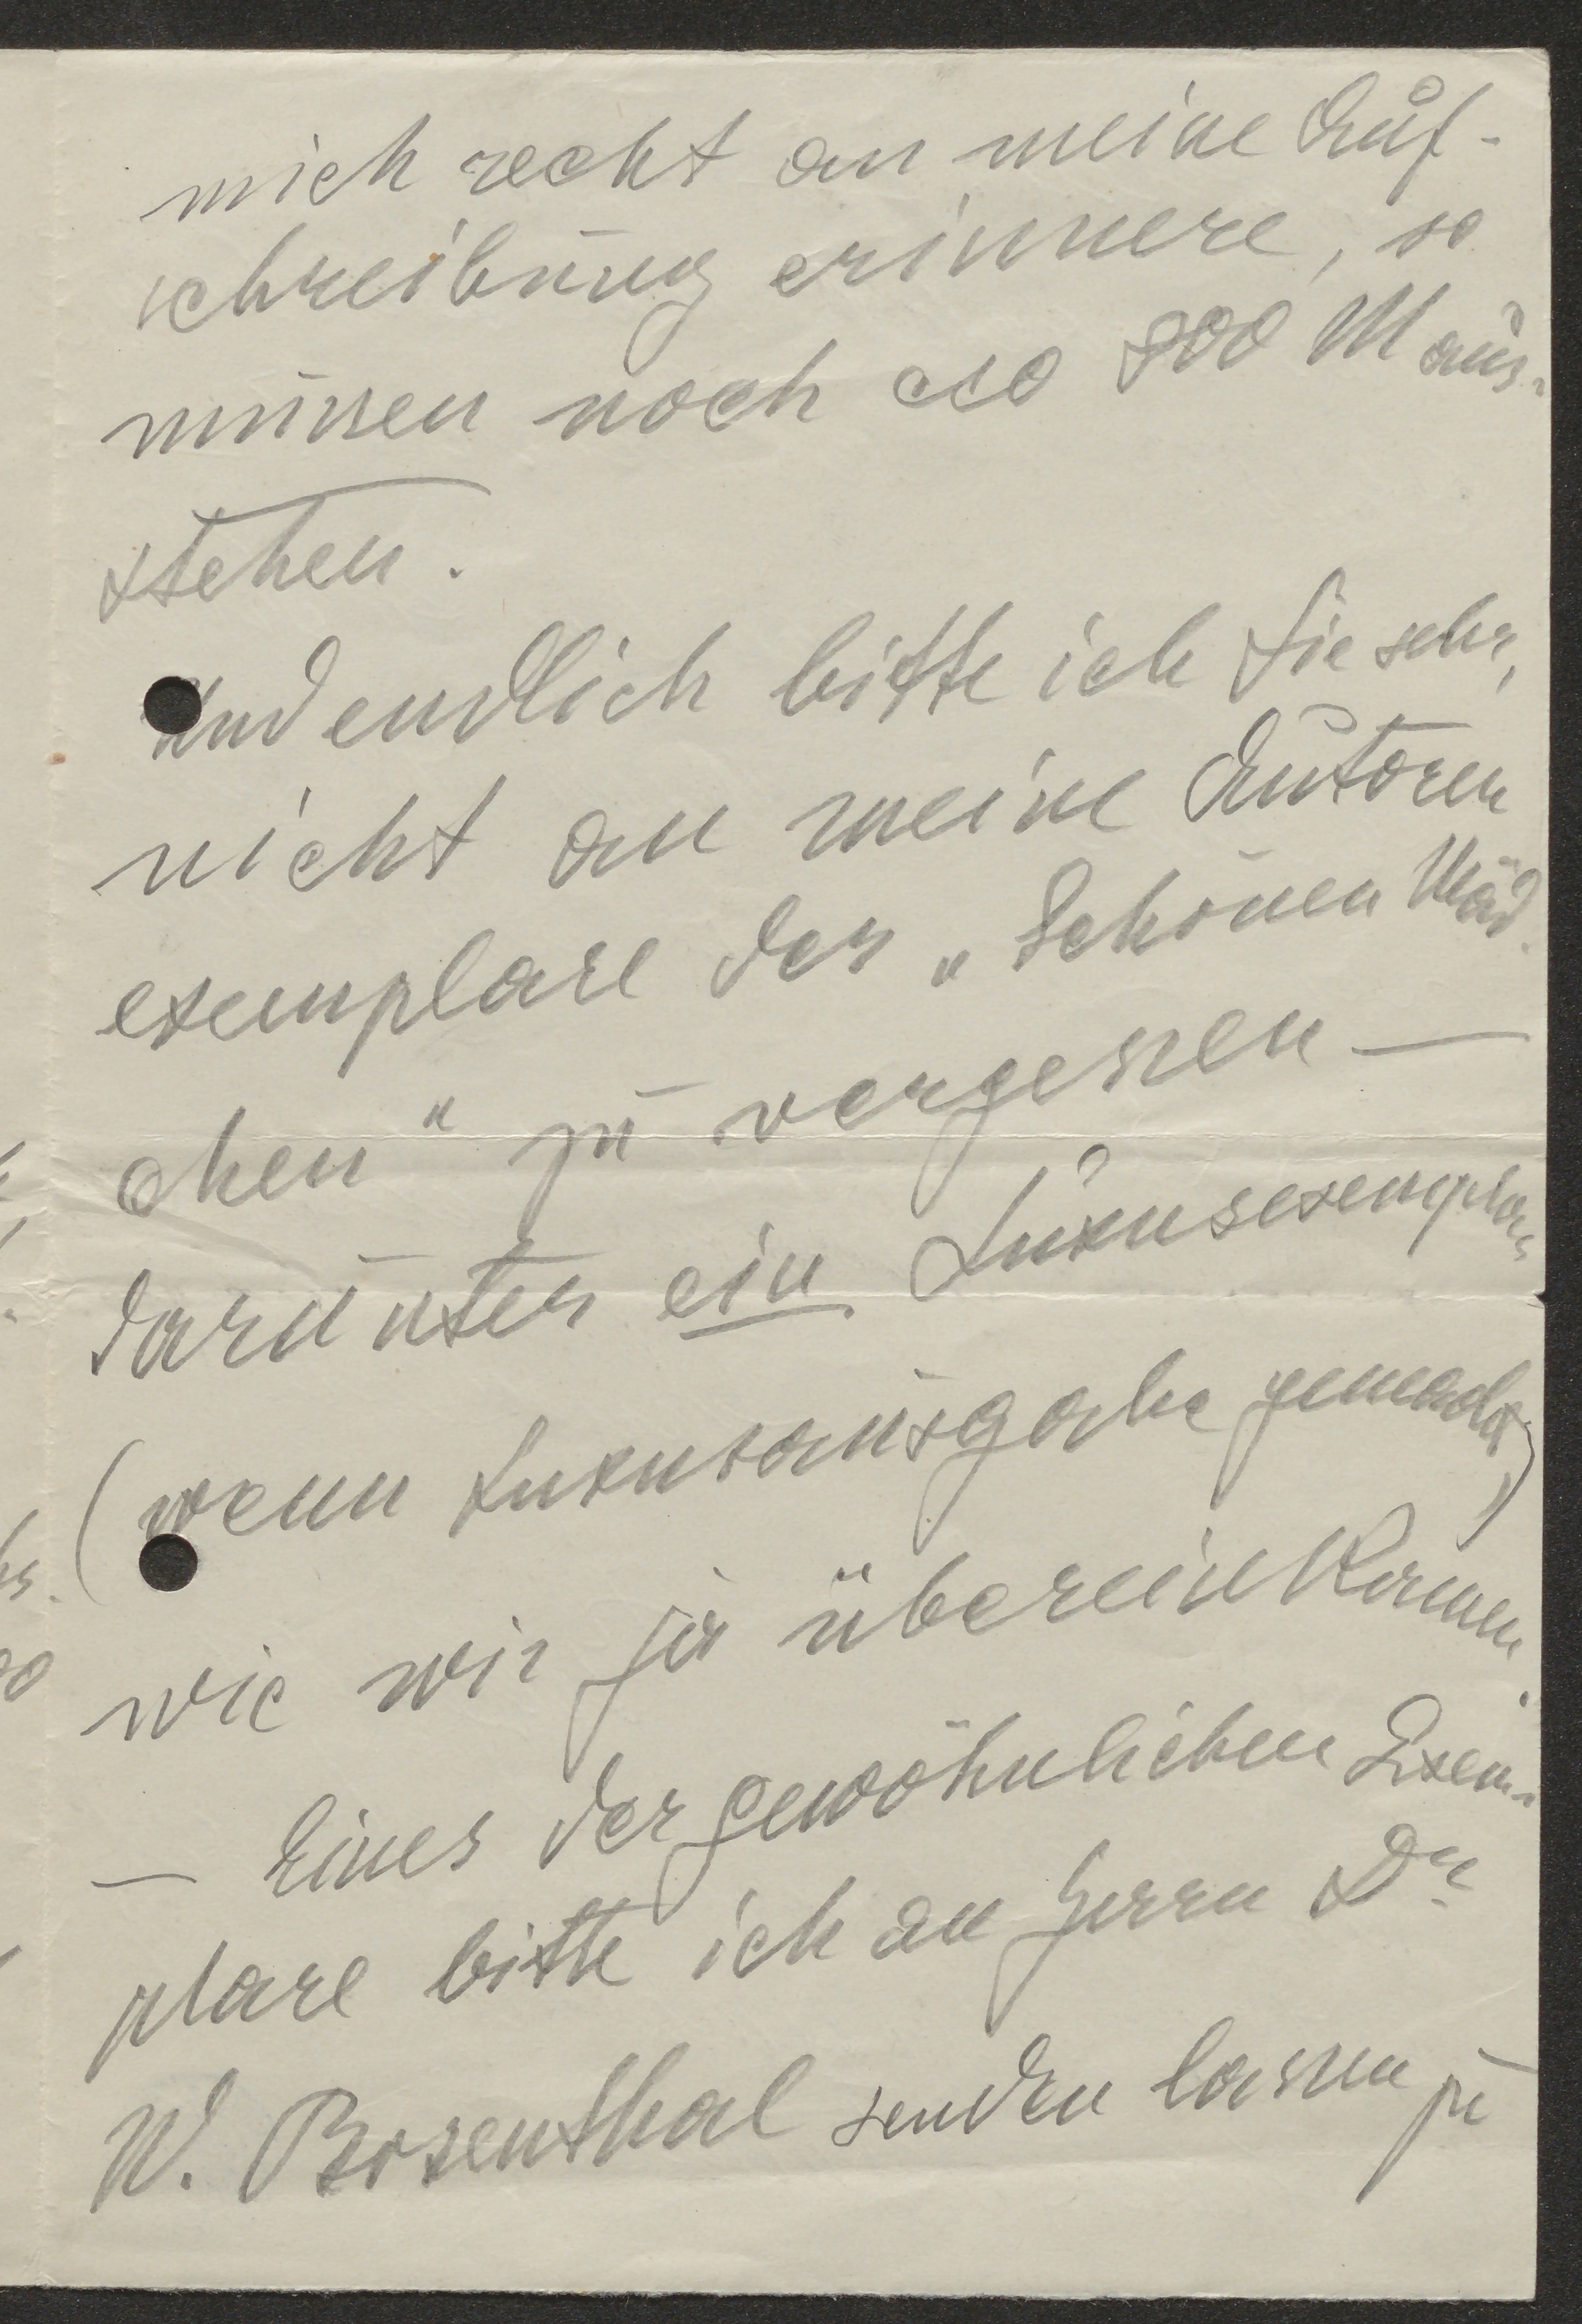 mich recht an meine Auf-
schreibung erinnere, so
müssen noch cco 200 M aus-
stehen.
Und endlich bitte ich Sie sehr,
nicht an meine Autoren
exemplare der „Schönen Mäd-
chen" zu vergessen —
darunter ein Luxusexemplar
(wenn Luxusausgabe gemacht)
wie wir ja übereinkamen.
— Eines der gewöhnlichen Exem-
plare bitte ich an Herrn Dr
W. Rosenthal senden lassen zu